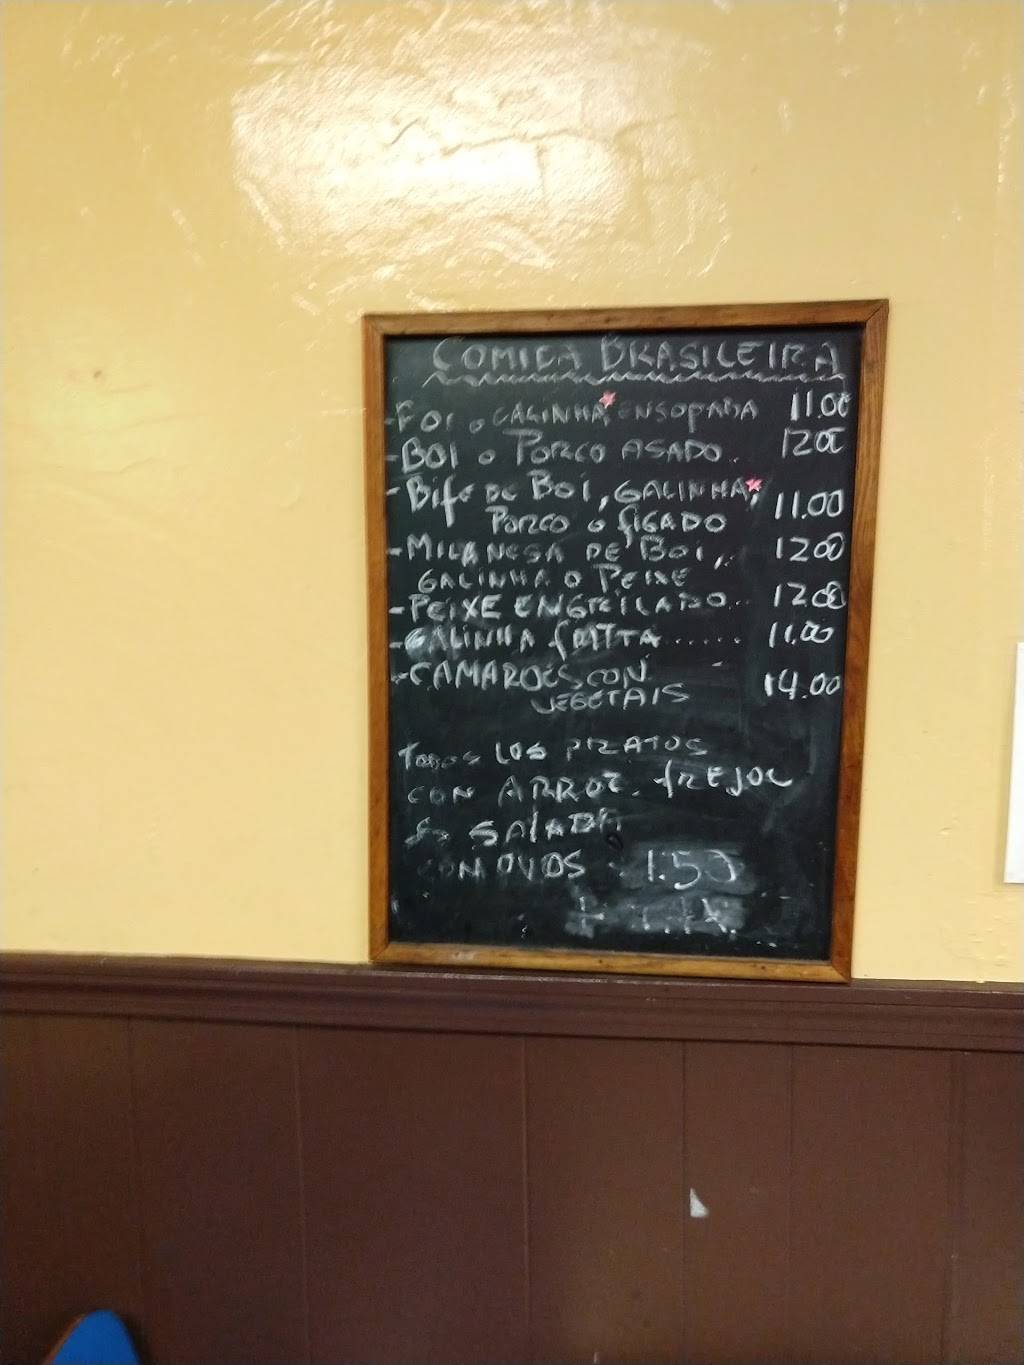 COMIDA BRASILEIRA
- BOI o GALINHA ENSOPADA 11.00
- BOI o PORCO ASADO.. 1200
- Bife DE BOI, GALINHA,
PORCO o fIGADO 11.00
- MILANESA DE BOI, 1200
GALINHA O PEIXE
- PEIXE ENGRILADO... 12.00
- GALINHA fRITA...... 11.00
- CAMAROES CON 14.00
VEGETAIS
TODOS LOS PRATOS
CON ARROZ. fREJOL
SALADA
CON OVOS 1.50